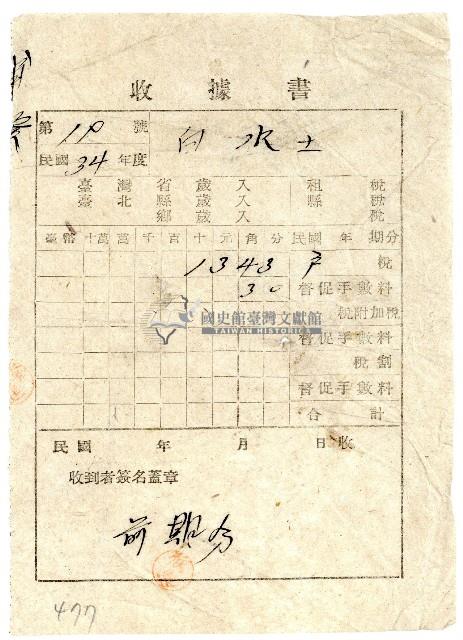 收據書
第 18 號
白水土
民國 34 年度
臺灣省歲入租稅
臺北縣歲入縣稅
鄉歲入稅
臺幣 十萬 萬 千 百 十 元 角 分 民國 年 期分
1343 戶稅
30 督促手數料
稅附加稅
國史館臺灣文獻館
TAIWAN HISTORICA
督促手數料
稅割
督促手數料
合計
民國 年 月 日收
收到者簽名蓋章
前期分
477